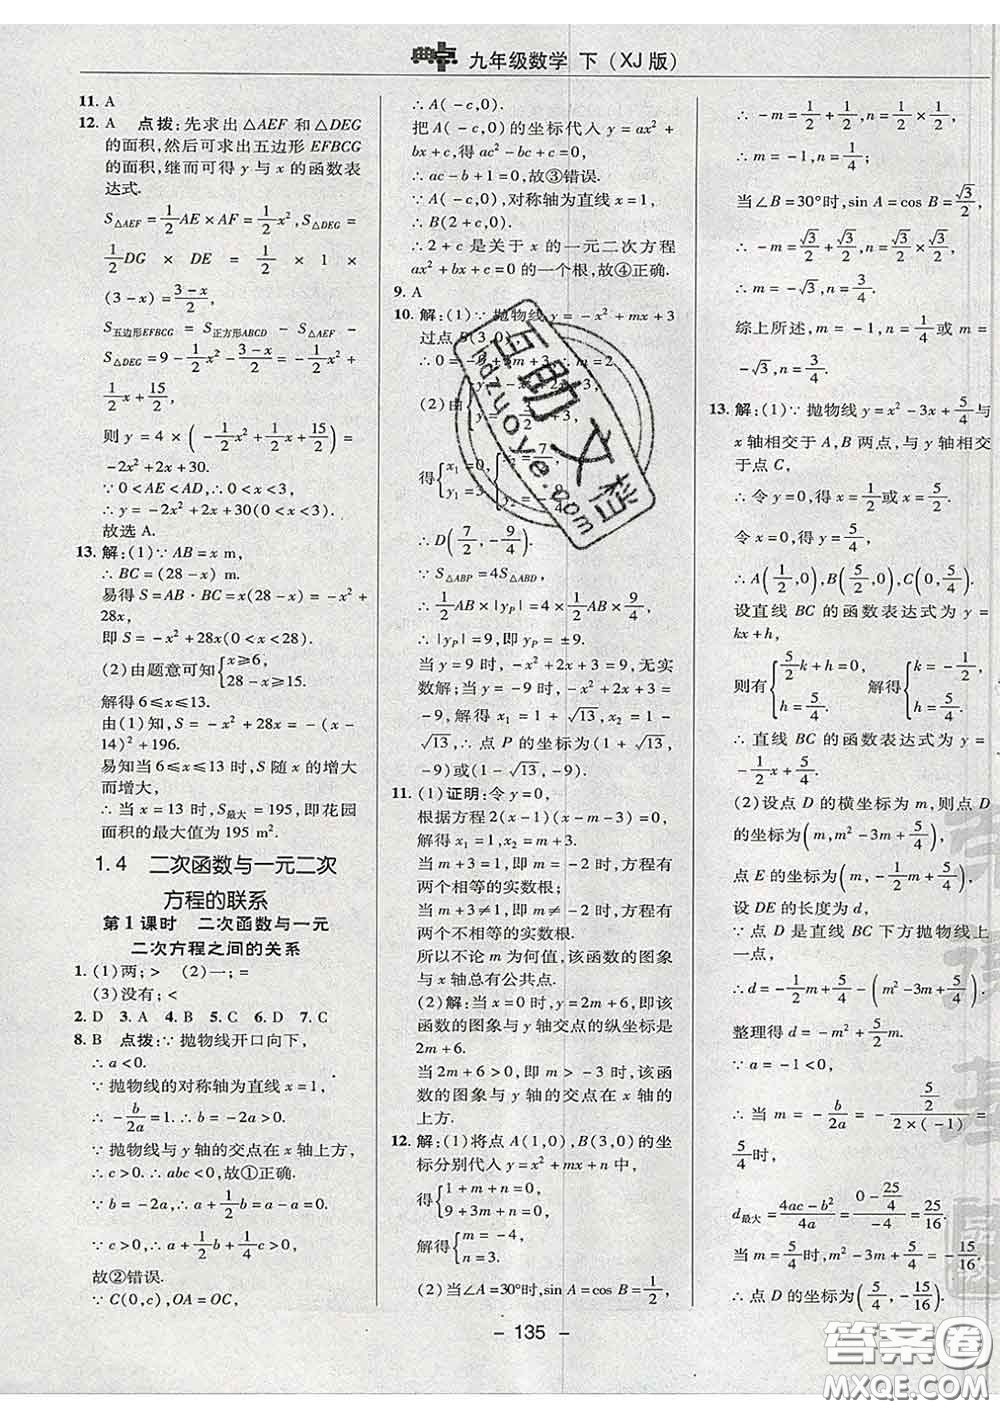 典点 九年级数学 下(XJ版)
11. A
12. A 点拨:先求出△AEF和△DEG
的面积,然后可求出五边形EFBCG
的面积,继而可得y与x的函数表
达式.
S△AEF=1/2AE×AF=1/2x²,S△DEG=
1/2DG × DE = 1/2 × 1 ×
(3-x)=(3-x)/2,
S五边形EFBCG=S正方形ABCD-S△AEF-
S△DEG=9-1/2x²-(3-x)/2=-1/2x²+
1/2x+15/2,
则y=4×(-1/2x²+1/2x+15/2)=
-2x²+2x+30.
∵0<AE<AD,∴0<x<3.
∴y=-2x²+2x+30(0<x<3).
故选A.
13. 解:(1)∵AB=x m,
∴BC=(28-x) m.
易得S=AB·BC=x(28-x)=-x²+
28x,
即S=-x²+28x(0<x<28).
(2)由题意可知{x≥6,
28-x≥15.
解得6≤x≤13.
由(1)知,S=-x²+28x=-(x-
14)²+196.
易知当6≤x≤13时,S随x的增大
而增大,
∴当x=13时,S最大=195,即花园
面积的最大值为195 m².
1.4 二次函数与一元二次
方程的联系
第1课时 二次函数与一元
二次方程之间的关系
1. (1)两;> (2)一;=
(3)没有;<
2. D 3. A 4. B 5. C 6. D 7. C
8. B 点拨:∵抛物线开口向下,
∴a<0.
∵抛物线的对称轴为直线x=1,
∴-b/2a=1.∴b=-2a>0.
∵抛物线与y轴的交点在x轴上方,
∴c>0.∴abc<0,故①正确.
∵b=-2a,∴a+1/2b=a-a=0.
∵c>0,∴a+1/2b+1/4c>0,
故②错误.
∵C(0,c),OA=OC,
∴A(-c,0).
把A(-c,0)的坐标代入y=ax²+
bx+c,得ac²-bc+c=0,
∴ac-b+1=0,故③错误.
∵A(-c,0),对称轴为直线x=1,
∴B(2+c,0).
∴2+c是关于x的一元二次方程
ax²+bx+c=0的一个根,故④正确.
9. A
10. 解:(1)∵抛物线y=-x²+mx+3
过点B(3,0),
∴0=-9+3m+3.∴m=2.
(2)由
得{x₁=0,
y₁=3
∴D(7/2,-9/4).
∵S△ABP=4S△ABD,
∴1/2AB×|yP|=4×1/2AB×9/4,
∴|yP|=9,即yP=±9.
当y=9时,-x²+2x+3=9,无实
数解;当y=-9时,-x²+2x+3=
-9,解得x₁=1+√13,x₂=1-
√13,∴点P的坐标为(1+√13,
-9)或(1-√13,-9).
11. (1)证明:令y=0,
根据方程2(x-1)(x-m-3)=0,
解得x₁=1,x₂=m+3.
当m+3=1,即m=-2时,方程有
两个相等的实数根;
当m+3≠1,即m≠-2时,方程有
两个不相等的实数根.
所以不论m为何值,该函数的图象
与x轴总有公共点.
(2)解:当x=0时,y=2m+6,即该
函数的图象与y轴交点的纵坐标是
2m+6.
当2m+6>0,即m>-3时,该函
数的图象与y轴的交点在x轴的
上方.
12. 解:(1)将点A(1,0),B(3,0)的坐
标分别代入y=x²+mx+n中,
得{1+m+n=0,
9+3m+n=0,
解得{m=-4,
n=3.
(2)当∠A=30°时,sin A=cos B=1/2,
∴-m=1/2+1/2,n=1/2×1/2,
∴m=-1,n=1/4;
当∠B=30°时,sin A=cos B=√3/2,
∴-m=√3/2+√3/2,n=√3/2×√3/2,
∴m=-√3,n=3/4.
综上所述,m=-1,n=1/4或m=
-√3,n=3/4.
13. 解:(1)∵抛物线y=x²-3x+5/4与
x轴相交于A,B两点,与y轴相交
于点C,
∴令y=0,得x=1/2或x=5/2,
令x=0,得y=5/4,
∴A(1/2,0),B(5/2,0),C(0,5/4).
设直线BC的函数表达式为y=
kx+h,
则有{5/2k+h=0,
h=5/4. 解得{k=-1/2,
h=5/4.
∴直线BC的函数表达式为y=
-1/2x+5/4.
(2)设点D的横坐标为m,则点D
的坐标为(m,m²-3m+5/4),
点E的坐标为(m,-1/2m+5/4),
设DE的长度为d,
∵点D是直线BC下方抛物线上
一点,
∴d=-1/2m+5/4-(m²-3m+5/4),
整理得d=-m²+5/2m.
∵a=-1<0,
∴当m=-b/2a=-(5/2)/(2×(-1))=
5/4时,
d最大=(4ac-b²)/4a=(0-25/4)/-4=25/16.
当m=5/4时,m²-3m+5/4=-15/16.
∴点D的坐标为(5/4,-15/16).
- 135 -
互助文档
hdzuoye.com
答案圈
MXQE.COM